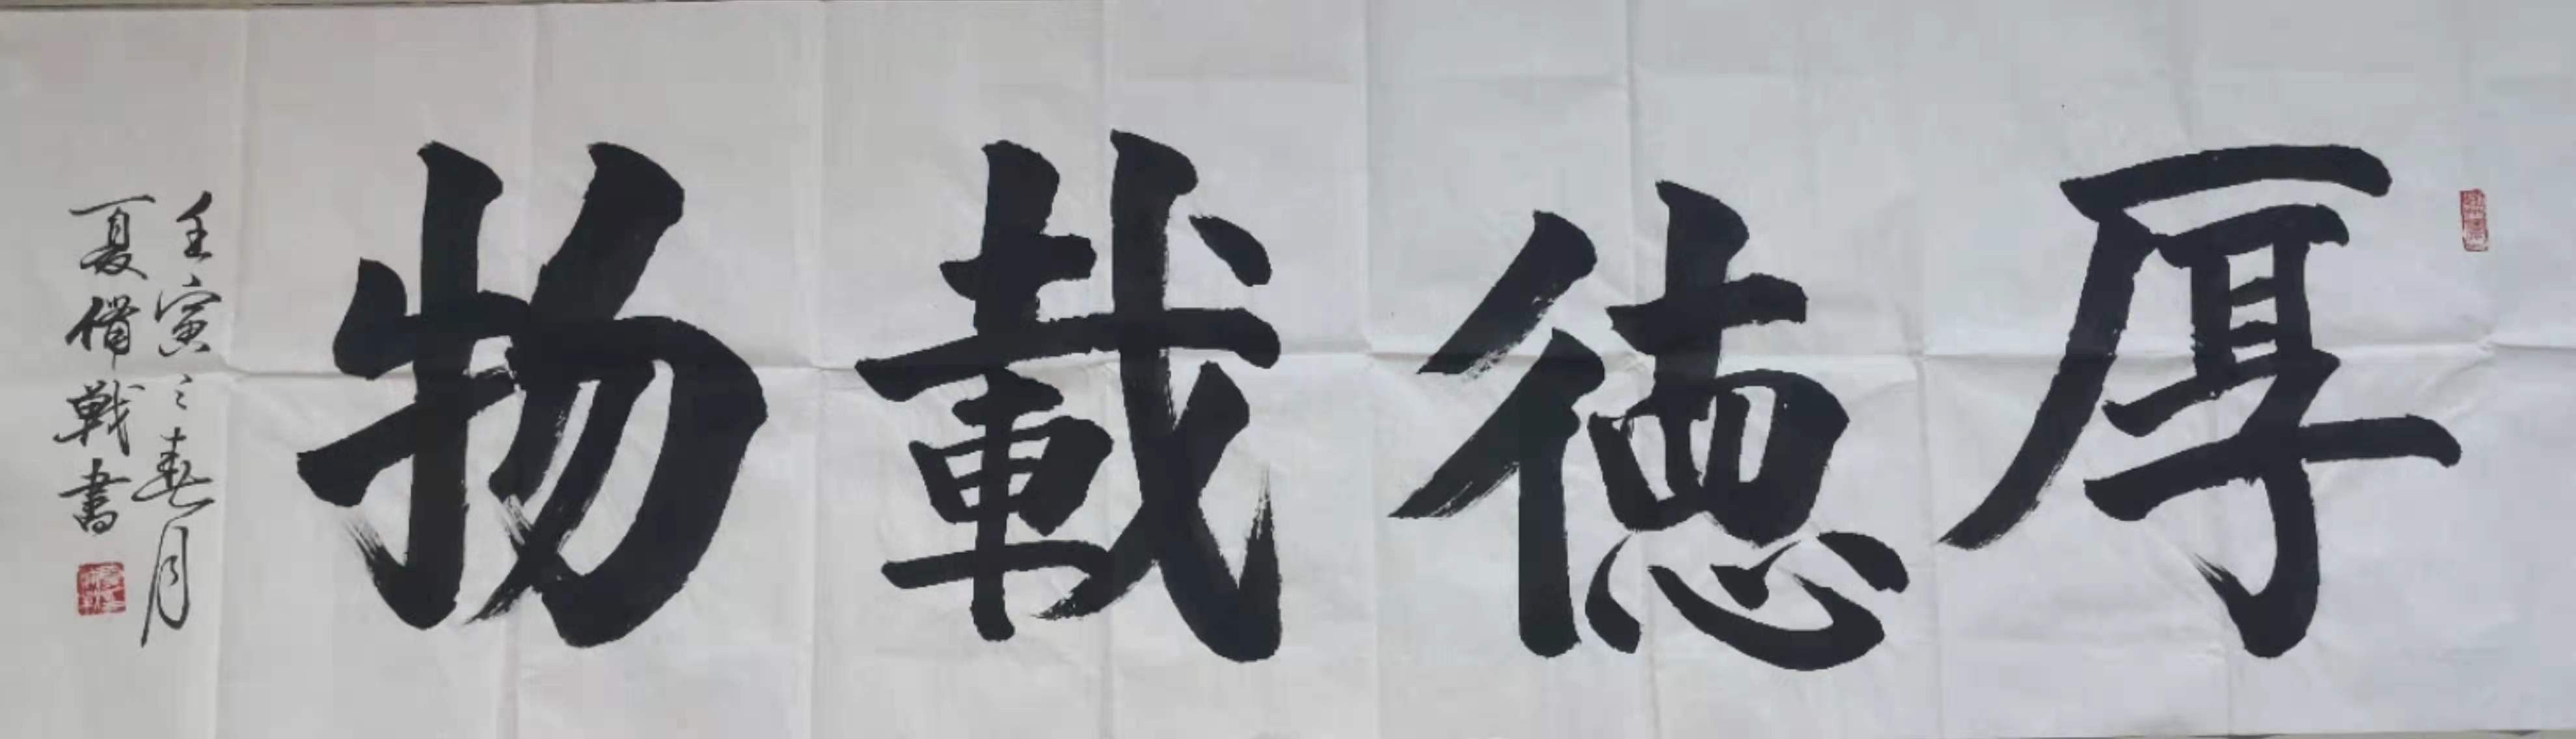 厚德載物
壬寅之春月
夏備戰書